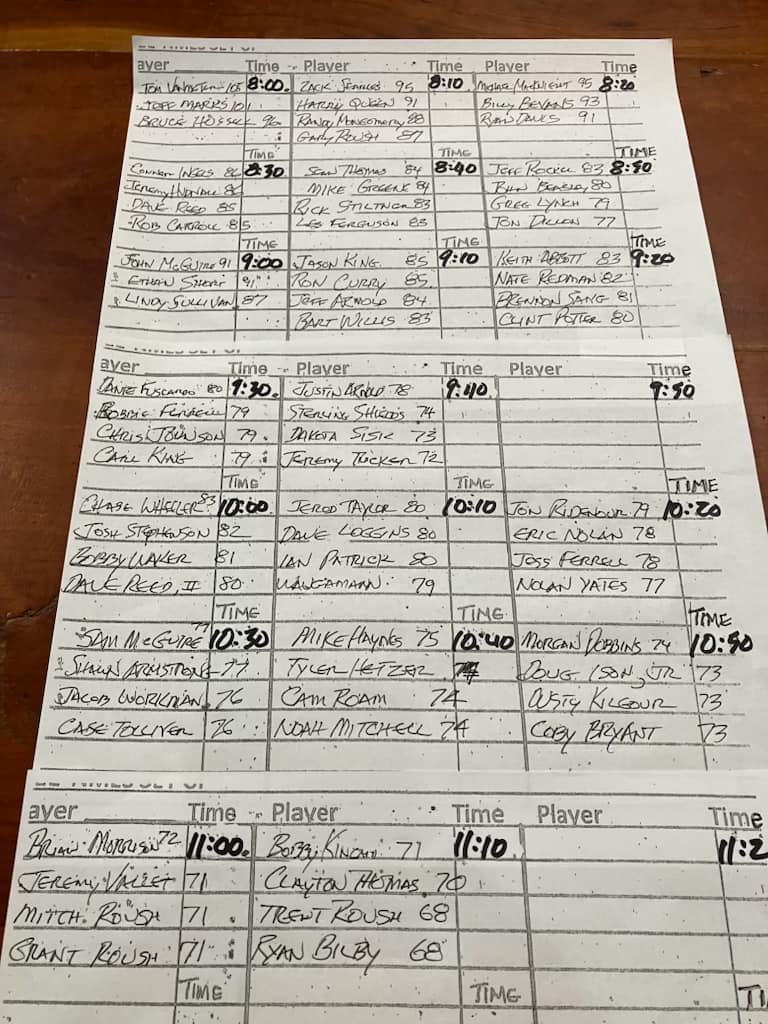 ayer Time Player Time Player Time
Tom 105 8:00. Zack 95 8:10 Michael 95 8:20
Jeff Marks 101 Harry Queen 91 Billy Bevans 93
Bruce 96 Randy Montgomery 88 Ryan Davis 91
Gary Roush 87
TIME TIME TIME
Connor 86 8:30 Sean Thomas 84 8:40 Jeff 83 8:50
Jeremy 86 Mike Greene 84 Beasley 80
Dave Reed 85 Rick Stiltner 83 Greg Lynch 79
Rob Carroll 85 Les Ferguson 83 Jon Dillon 77
TIME TIME TIME
John McGuire 91 9:00 Jason King 85 9:10 Keith Abbott 83 9:20
Ethan Short 91 Ron Curry 85 Nate Redman 82
Lindy Sullivan 87 Jeff Arnold 84 Brennon Sang 81
Bart Willis 83 Clint Potter 80
ayer Time Player Time Player Time
Dante 80 9:30. Justin Arnold 78 9:40 9:50
Bobbie Ferrell 79 Sterling Shields 74
Chris Johnson 79 Dakota Sisk 73
Carl King 79 Jeremy Tucker 72
TIME TIME TIME
Chase Wheeler 83 10:00 Jerod Taylor 80 10:10 Jon Ridenour 79 10:20
Josh Stephenson 82 Dave Loggins 80 Eric Nolan 78
Bobby Waker 81 Ian Patrick 80 Joss Ferrell 78
Dave Reed, II 80 79 Nolan Yates 77
TIME TIME TIME
Sam McGuire 79 10:30 Mike Haynes 75 10:40 Morgan Dobbins 74 10:50
Shawn Armstrong 77 Tyler Hetzer 74 Doug Ison, Jr 73
Jacob Workman 76 Cam Roam 74 Dusty Kilgour 73
Case Tolliver 76 Noah Mitchell 74 Coby Bryant 73
ayer Time Player Time Player Time
Brian Morrison 72 11:00. Bobby 71 11:10 11:2
Jeremy Vallet 71 Clayton Thomas 70
Mitch Roush 71 Trent Roush 68
Grant Roush 71 Ryan Bilby 68
TIME TIME TI